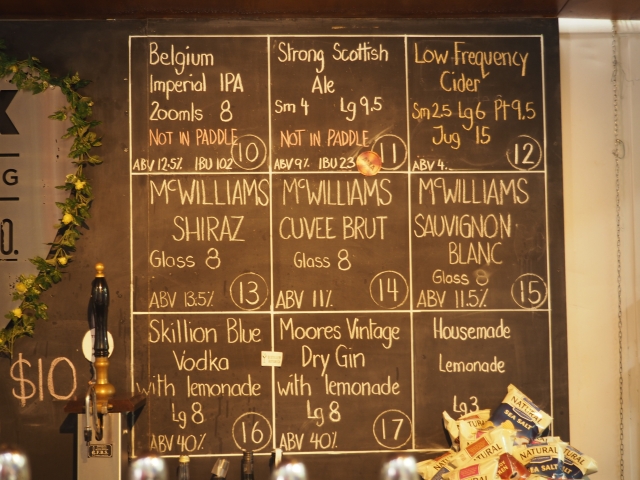 Belgium
Imperial IPA
200mls 8
NOT IN PADDLE
ABV 12.5% IBU 102
10
Strong Scottish
Ale
Sm 4 Lg 9.5
NOT IN PADDLE
ABV 9% IBU 23
11
Low Frequency
Cider
Sm 2.5 Lg 6 Pt 9.5
Jug 15
ABV 4.
12
McWILLIAMS
SHIRAZ
Glass 8
ABV 13.5%
13
McWILLIAMS
CUVEE BRUT
Glass 8
ABV 11%
14
McWILLIAMS
SAUVIGNON
BLANC
Glass 8
ABV 11.5%
15
Skillion Blue
Vodka
with lemonade
Lg 8
ABV 40%
16
Moores Vintage
Dry Gin
with lemonade
Lg 8
ABV 40%
17
Housemade
Lemonade
Lg 3
$10
G
O.
NATURAL
SEA SALT
NATURAL
SEA SALT